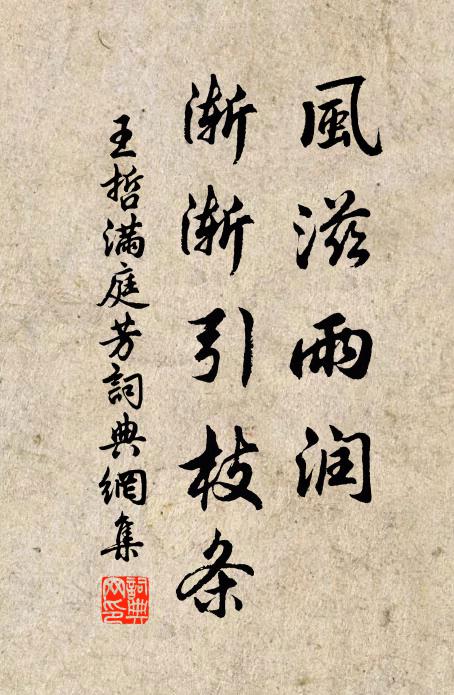 風滋雨润
渐渐引枝条
王哲满庭芳詞典網集
詞典
网印